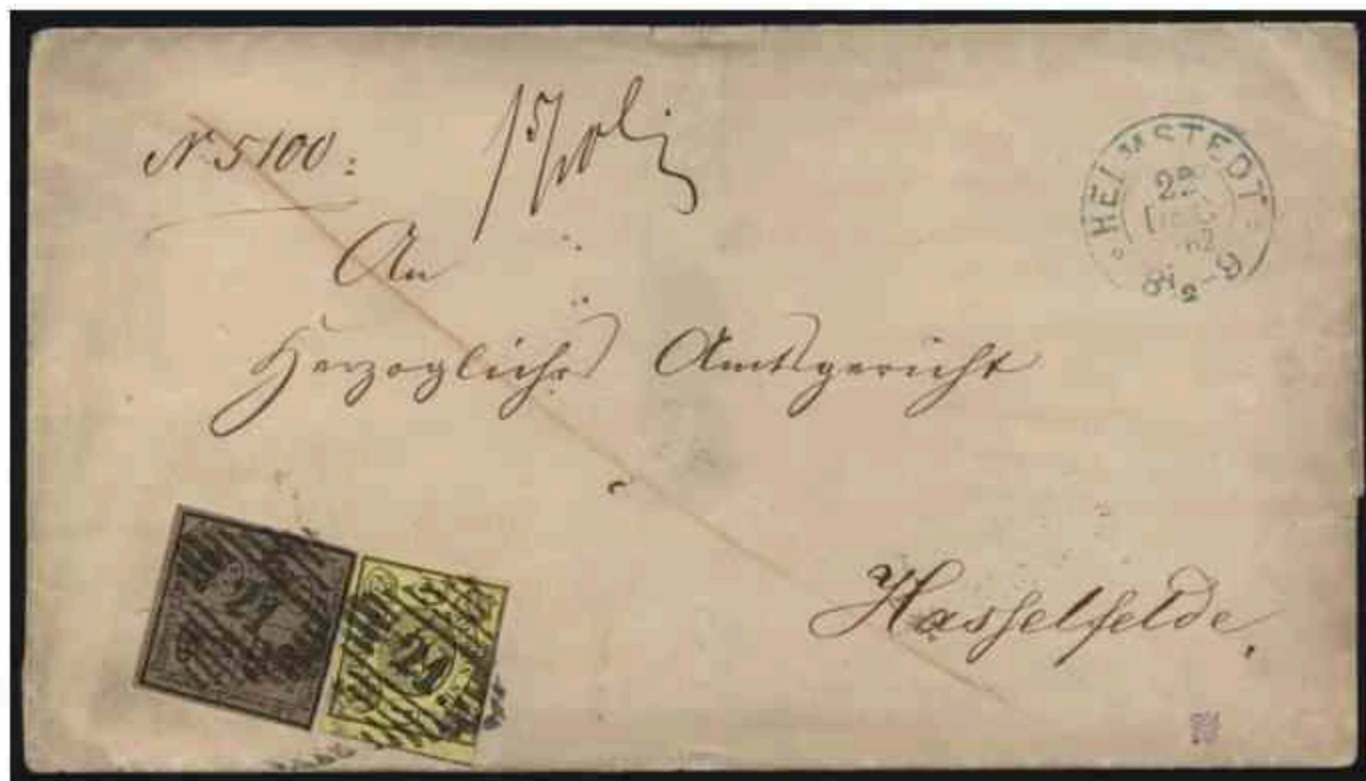 N 5100:
HELMSTEDT
22
62
8½-9
An
Herzogliches Amtsgericht
Hasselfelde.
21
21